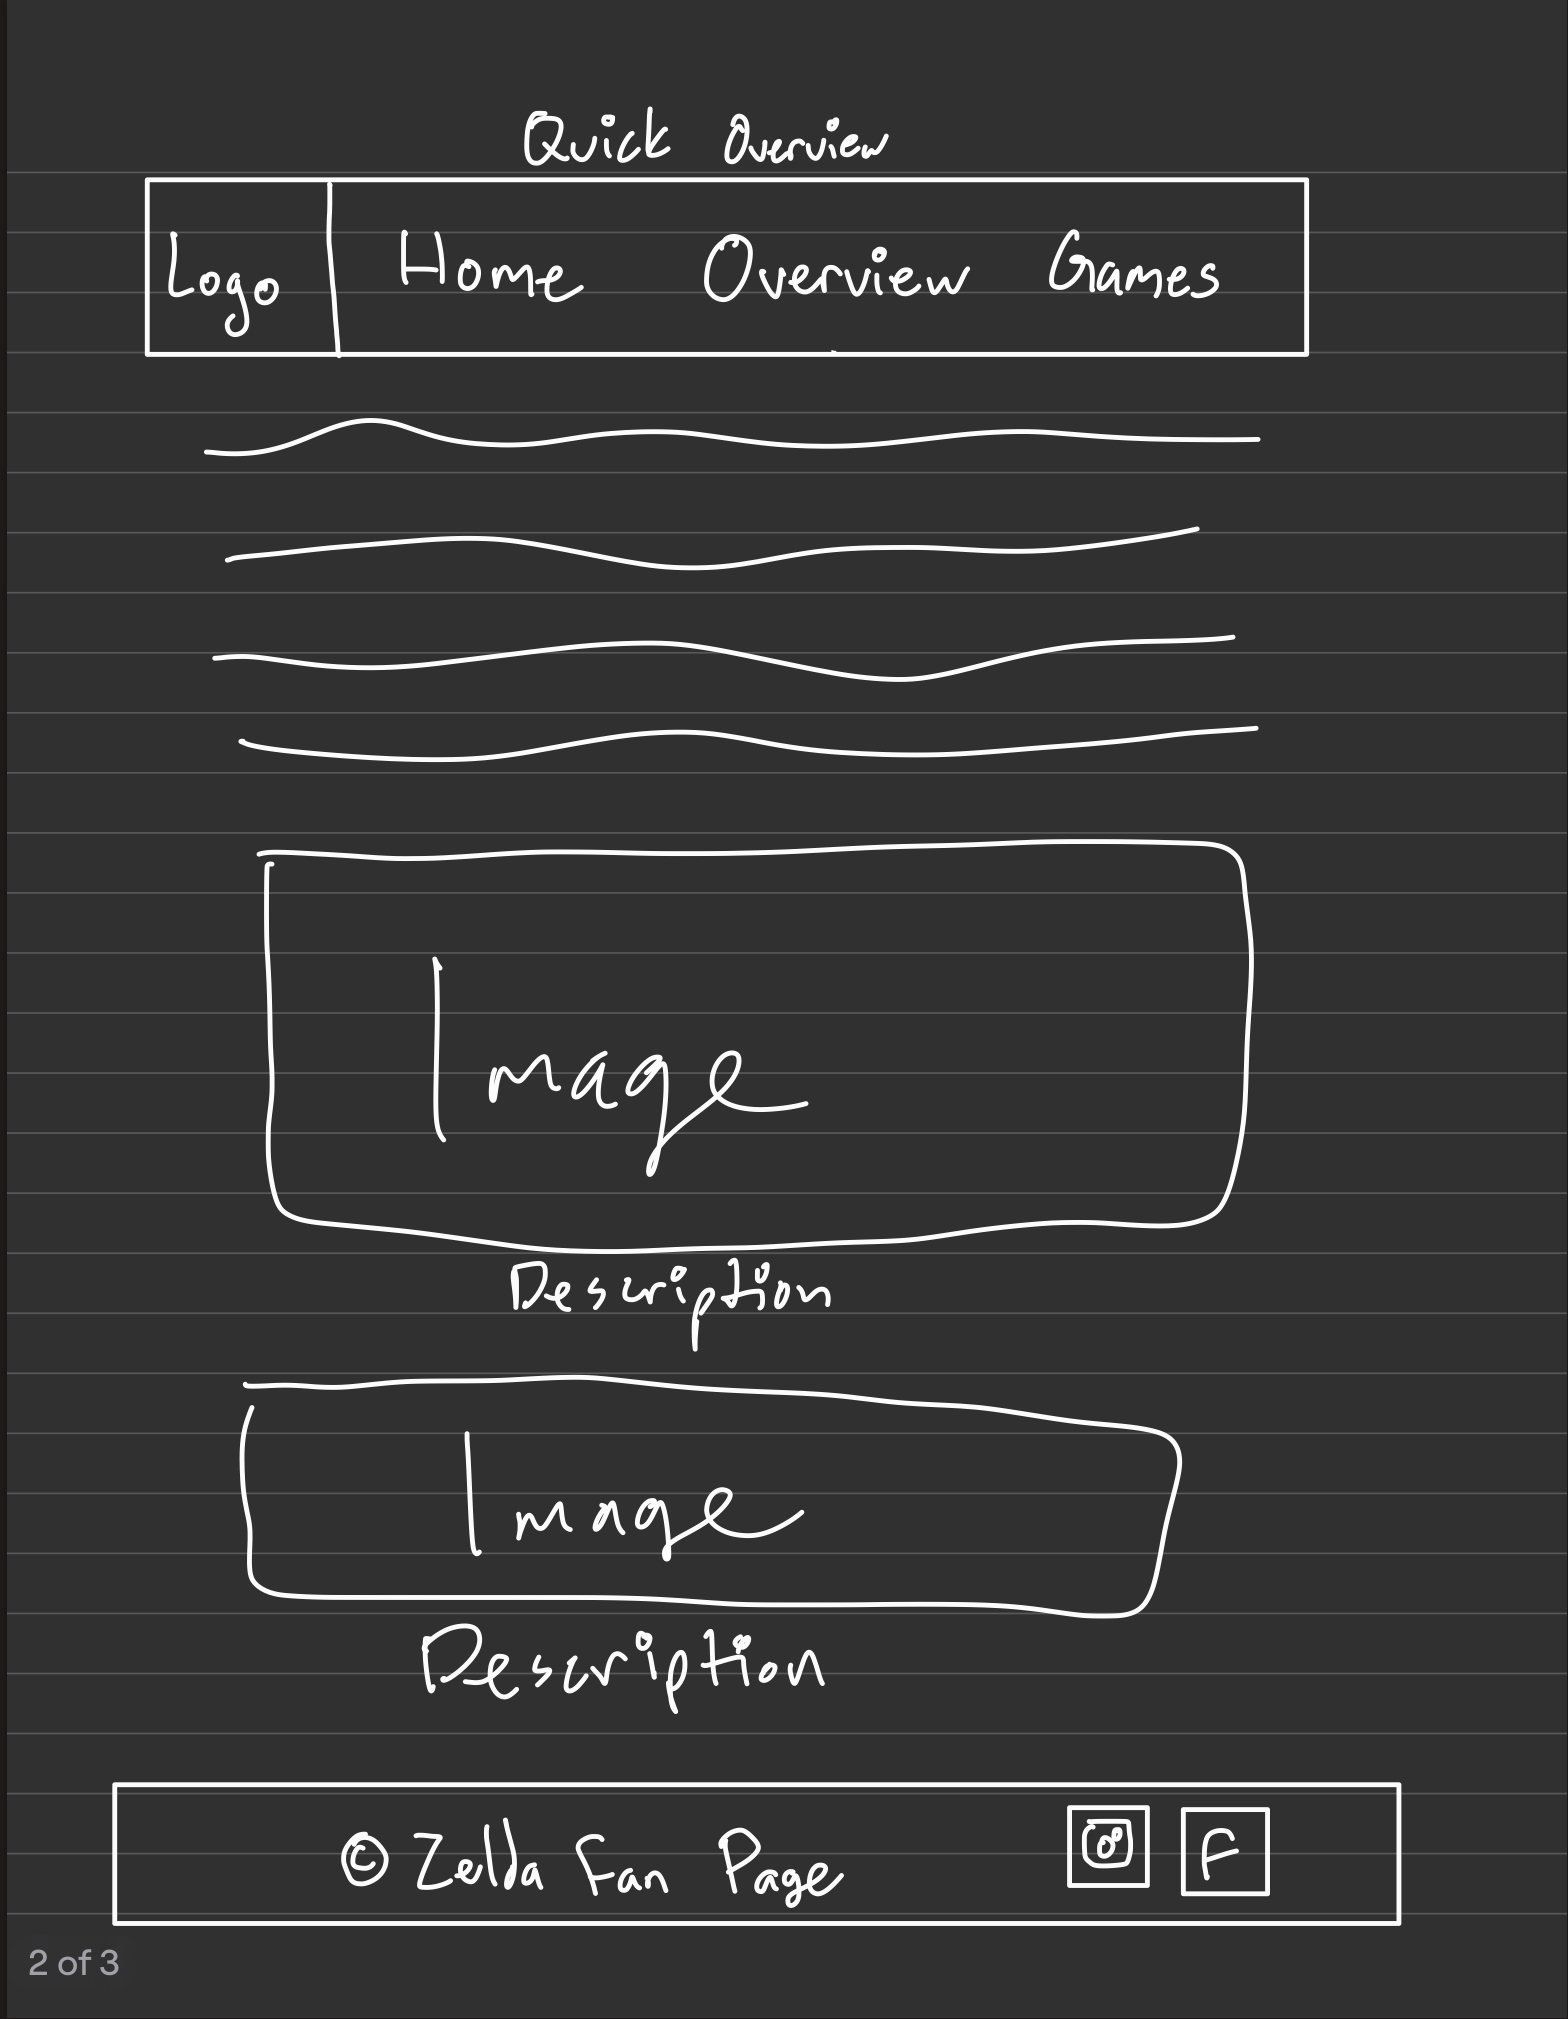 Quick Overview
Logo Home Overview Games
Image
Description
Image
Description
© Zelda Fan Page f
2 of 3